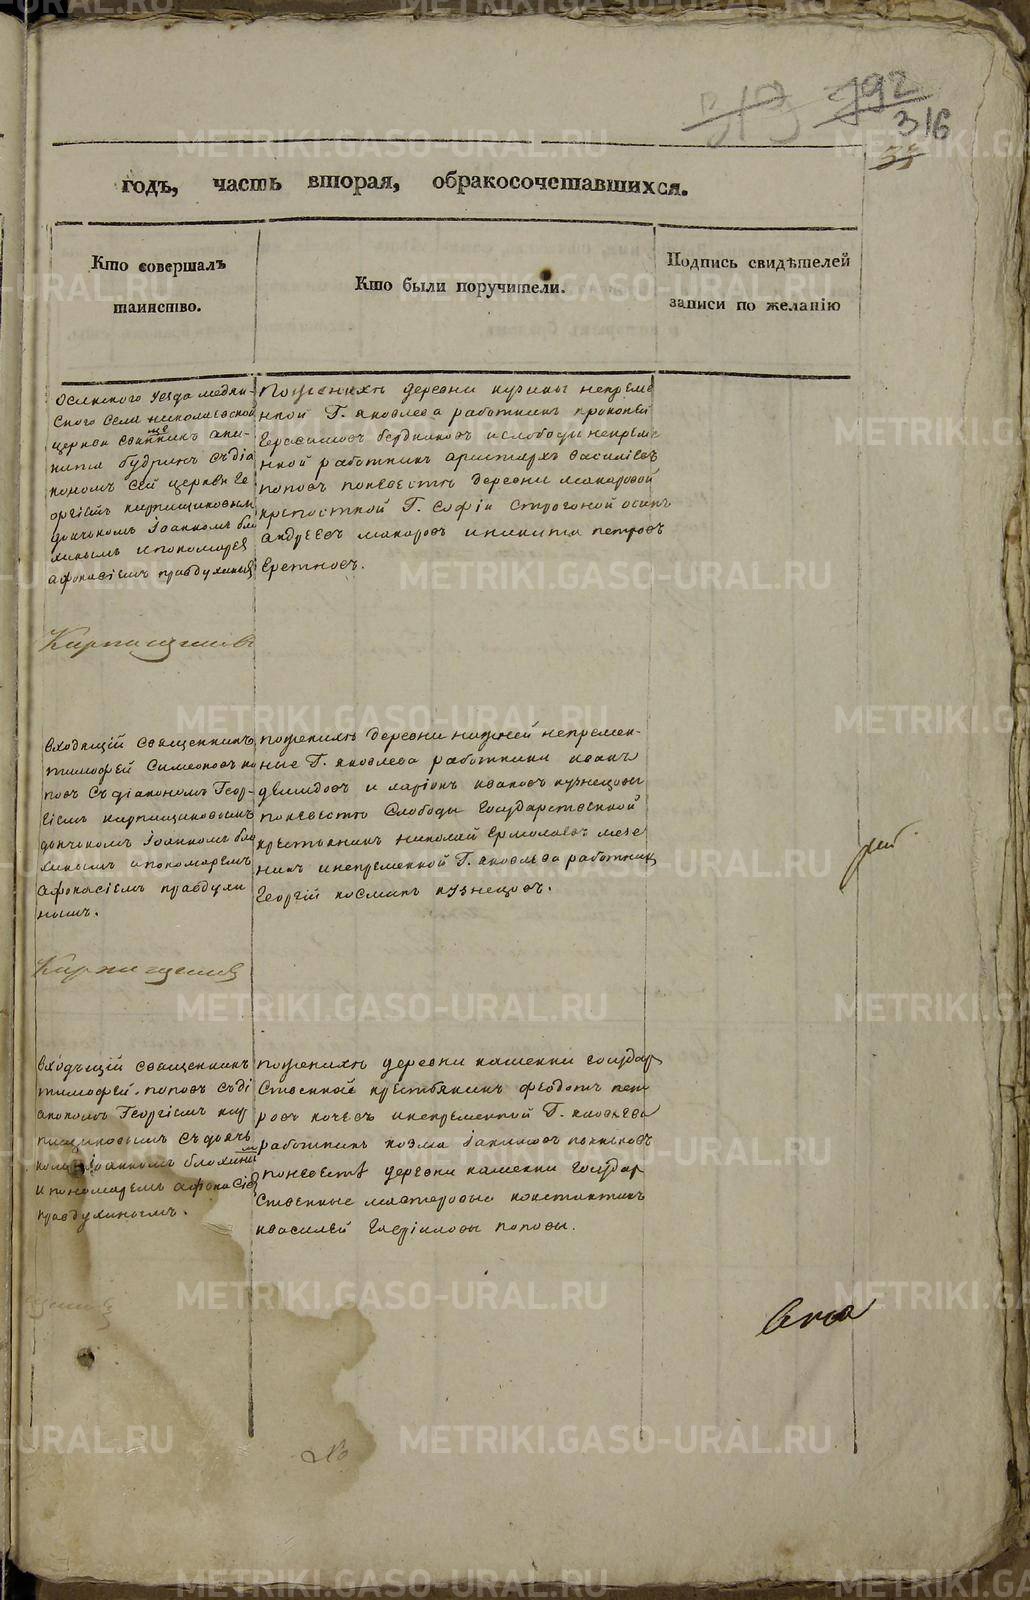 792
316
годъ, часть вторая, обракосочетавшихся.
Кто совершалъ
таинство.
Кто были поручители.
Подпись свидѣтелей
записи по желанію
осинского уезда
ского села николаевской
церкви священникъ
кита будринъ съ діа
кономъ сей церкви Ге
оргіемъ кирпищиковымъ
дьячкомъ Іоанномъ бло
хинымъ и пономаремъ
афонасіемъ правдухинымъ
Кирпищиковъ
поженихѣ деревни непреме
нной Г. яковлева работникъ прокопей
Герасимовъ бердниковъ и слободы непреме
нной работникъ аристархъ василіевъ
поповъ поневестѣ деревни макаровой
крепостной Г. Софіи строгоной осипъ
андреевъ макаровъ и никита петровъ
еретновъ.
входящій священникъ
тимофей Симеоновъ по
повъ съ діакономъ Геор-
гіемъ кирпищиковымъ
дьячкомъ Іоанномъ бло
хинымъ и пономаремъ
афонасіемъ правдухи
нымъ.
Кирпищиковъ
поженихѣ деревни нижней непремен-
ные Г. яковлева работники иванъ
и ларіонъ ивановъ кузнецовы
поневестѣ Слободы Государственной
крестьянинъ николай Ермолаевъ мезе
нинъ и непременной Г. яковлева работникъ
Георгій косминъ кузнецовъ.
входящій священникъ
тимофей поповъ съ ді
акономъ Георгіемъ кир
пищиковымъ съ дьячь
комъ Іоанномъ блохинымъ
и пономаремъ афонасіемъ
правдухинымъ.
поженихѣ деревни каменки государ
ственной крестьянинъ феодотъ пет
ровъ кочевъ и непременной Г. яковлева
работникъ козма
поневестѣ деревни каменки государ
ственные мастеровые константинъ
ивасилей Гавріиловы поповы.
METRIKI.GASO-URAL.RU